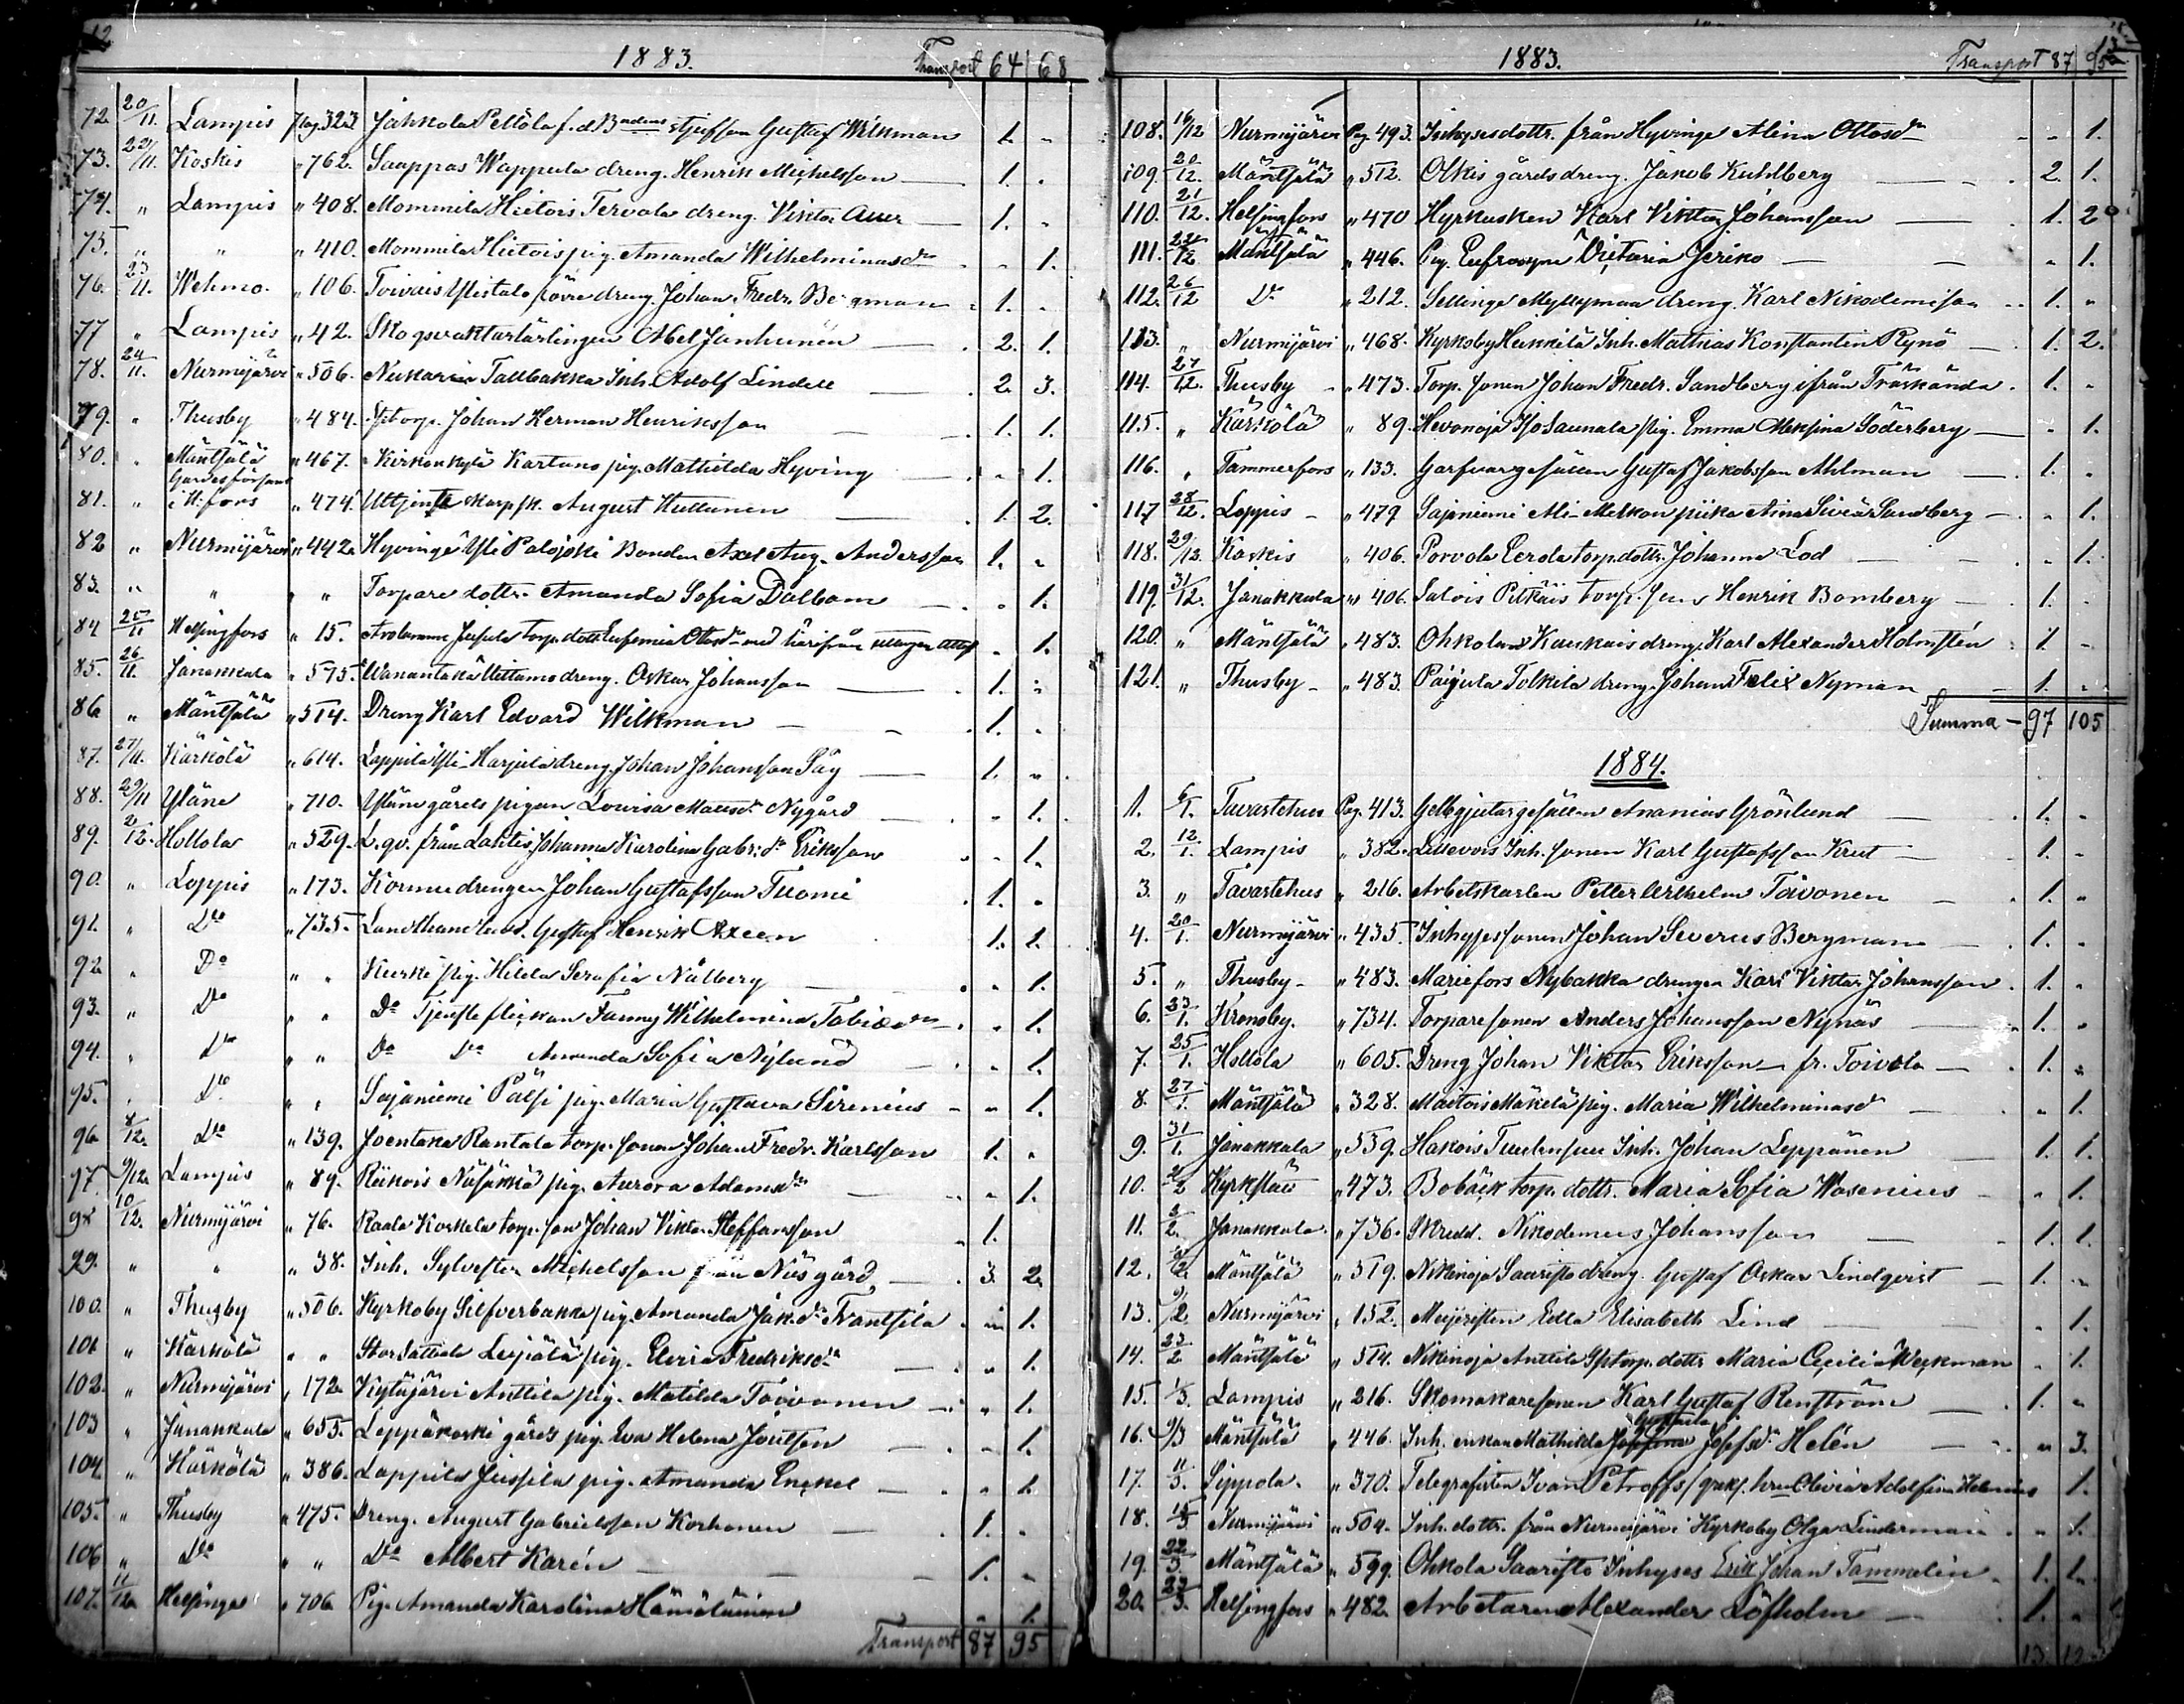 12
1883. Transport 64 68
72. 20/11. Lampis Pag. 323 Jahkola Peltola f.d. Bondens styfson Gustaf Wikman 1. "
73. 22/11. Koskis " 762. Saappas Wappula dreng. Henrik Michelsson 1. "
74. " Lampis " 408. Mommila Hietois Tervala dreng. Viktor Auer 1. "
75. " " " 410. Mommila Hietois pig. Amanda Wilhelminasdr " 1.
76. 23/11. Wehmo. " 106. Toivais dreng. Johan Fredr. Bergman 1. "
77 " Lampis " 42. Abel Janhunen 2. 1.
78. 24/11. Nurmijärvi " 506. Nukari Tallbakka Inh. Adolf Lindell 2. 3.
79. " Thusby " 484. Sptorp. Johan Herman Henriksson 1. 1.
80. " Mäntsälä " 467. Kirkonkylä Kartano pig. Mathilda Hyving " 1.
81. " Gardesförsaml. i H:fors " 474. Uttjente skarpsk. August Huttunen 1. 2.
82 " Nurmijärvi " 442. Hyvinge Yli Palojoki Bonden Axel Aug. Andersson 1. "
83. " " " " Torpare dottr. Amanda Sofia Dalbom " 1.
84 25/11 Helsingfors " 15. torp. dottr Eufemia Ottosdr med härifrån " 1.
85. 26/11. Janakkala " 575. Wanantaka Uittamo dreng. Oskar Johansson 1. "
86. " Mäntsälä " 514. Dreng Karl Edvard Wilkman 1. "
87. 27/11. Kärkölä " 614. Lappila Yli-Harjula dreng. Johan Johansson Påg 1. "
88. 29/11 Yläne " 710. Yläne gårds pigan Lovisa Mattsdr Nygård " 1.
89. 2/12. Hollola " 529. L. qv. från Lahtis Johanna Karolina Gabr:dr Eriksson " 1.
90. " Loppis " 173. Kormu drengen Johan Gustafsson Tuomi 1. "
91. " Do " 735. Landthandland. Gustaf Henrik Axeen 1. 1.
92. " Do " " Kurki pig. Hilda Serafia Nålberg " 1.
93. " Do " " Do Tjenste flickan Fanny Wilhelmina Tobiasdr " 1.
94. " Do " " Do Do Amanda Sofia Nylund " 1.
95. " Do " " Sajaniemi Pälsi pig. Maria Gustava Sirenius " 1.
96. 8/12. Do " 139. Joentaka Rantala torp. sonen Johan Fredr. Karlsson 1. "
97. 9/12. Lampis " 89. Riikois pig. Aurora Adamsdr " 1.
98 10/12. Nurmijärvi " 76. Raala Koskela torp. son Johan Viktor Steffansson 1.
99. " " " 38. Inh. Sylvester Michelsson från Näsgård 3. 2.
100. " Thusby " 506. Kyrkoby Silfverbacka pig. Amanda Jak.dr Frantsila " 1.
101 " Kärkölä " " Leijälä pig. Elviira Fredriksdr " 1.
102. " Nurmijärvi " 172. Kytäjärvi Anttila pig. Matilda Toivonen " 1.
103 " Janakkala " 655. Leppäkoski gårds pig. Eva Helena Joutsen " 1.
104. " Kärkölä " 386. Lappila Jussila pig. Amanda Enckel " 1.
105. " Thusby " 475. Dreng. August Gabrielsson Korhonen 1. "
106 " Do " " Do Albert Karén 1. "
107. 11/12. Helsinge " 706 Pig. Amanda Karolina Hämäläinen " 1.
Transport 87 95
13
1883. Transport 87 95
108. 16/12 Nurmijärvi Pag. 493. Inhysesdottr. från Hyvinge Alina Ottosdr " 1.
109. 20/12. Mäntsälä " 512. Olkis gårds dreng. Jakob Kuhlberg 2. 1.
110. 21/12. Helsingfors " 470 Hyrkusken Karl Viktor Johansson 1. 2
111. 22/12 Mäntsälä " 446. Pig. Eufrosyne Victoria Jeriko " 1.
112. 26/12 Do " 212. Sellinge Myllymaa dreng. Karl Nikodemisson 1. "
113. " Nurmijärvi " 468. Kyrkoby Heikkilä Inh. Mathias Konstantin Rynö 1. 2.
114. 27/12. Thusby " 473. Torp. sonen Johan Fredr. Sandberg ifrån Träskända 1. "
115. " Kärkölä " 89. Hevonoja Iso Saunala pig. Emma Alexina Söderberg " 1.
116. " Tammerfors " 133. Garfvaregesällen Gustaf Jakobsson Ahlman 1. "
117 28/12. Loppis " 479 Sajaniemi Ali-Melkon piika Aina Siviä Sandberg " 1.
118. 29/12. Koskis " 406. Porvola Eerola torp. dottr. Johanna Lod " 1.
119. 31/12. Janakkala " 406. Salois Pitkäis torp. son Henrik Bomberg 1. "
120. " Mäntsälä " 483. Ohkola Kaukais dreng. Karl Alexander Holmstén 1 "
121. " Thusby " 483. Paijala Tolkila dreng. Johan Felix Nyman 1. "
Summa 97 105
1884.
1. 6/1. Tavastehus Pag. 413. Gelbgjutargesällen Ananias Grönlund 1. "
2. 12/1. Lampis " 382. Lieevois Inh. sonen Karl Gustafsson Krut 1. "
3. " Tavastehus " 216. Arbetskarlen Petter Wilhelm Toivonen 1. "
4. 20/1. Nurmijärvi " 435. Inhysessonen Johan Severus Bergman 1. "
5. " Thusby " 483. Mariefors Nybakka drengen Karl Viktor Johansson 1. "
6. 23/1. Kronoby. " 734. Torparesonen Anders Johansson Nynäs 1. "
7. 25/1. Hollola " 605. Dreng Johan Viktor Eriksson fr. Toivola 1. "
8. 27/1. Mäntsälä " 328. Maitois Mäkelä pig. Maria Wilhelminasdr " 1.
9. 31/1. Janakkala " 539. Hakois Inh. Johan Leppänen 1. 1.
10. 2/2 Kyrkslätt " 473. Bobäck torp. dottr. Maria Sofia Wasenius " 1.
11. 3/2. Janakkala. " 736. Skredd. Nikodemus Johansson 1. 1.
12. Mäntsälä " 519. Nikinoja Saaristo dreng. Gustaf Oskar Lindqvist 1. "
13. 9/2. Nurmijärvi " 152. Mejeristen Edla Elisabeth Lind " 1.
14. 23/2 Mäntsälä " 514. Nikinoja Anttila Sptorp. dottr Maria Cecilia Weckman " 1.
15. 1/3. Lampis " 216. Skomakaresonen Karl Gustaf Renström 1. "
16. 9/3 Mäntsälä " 446. Inh. enkan Mathilda Gustava Josefsdr Helén " 3.
17. 11/3. Sippola. " 370. Telegrafisten Ivan Petroffs hru Olivia Adolfina Helenius 1.
18. 15/3 Nurmijärvi " 504. Inh. dottr. från Nurmijärvi Kyrkoby Olga Linderman " 1.
19. 22/3. Mäntsälä " 599. Ohkola Saaristo Inhyses Erik Johan Tammelin 1. 1.
20. 23/3. Helsingfors " 482. Arbetaren Alexander Löfholm 1. "
13. 12